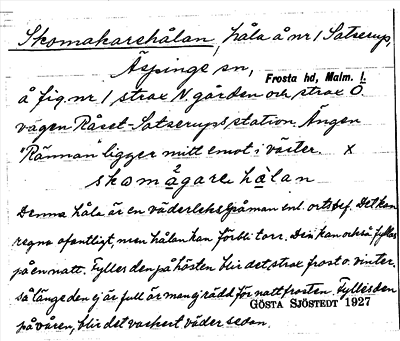 Skomakarehålan, håla å nr 1 Satserup,
Äspinge sn, Frosta hd, Malm. l.
å fig. nr 1 strax N gården och strax O.
vägen Råset-Satserups station. Ängen
"Rännan" ligger mitt emot i väster. x
skomågare hålan
Denna håla är en väderleksspåman enl. ortsbef. Det kan
regna ofentligt, men hålan kan förbli torr. Den kan också fyllas
på en natt. Fylles den på hösten blir det strax frost o. vinter.
så länge den ej är full är man ej rädd för nattfrosten. Fylles den
på våren, blir det vackert väder sedan.
GÖSTA SJÖSTEDT 1927